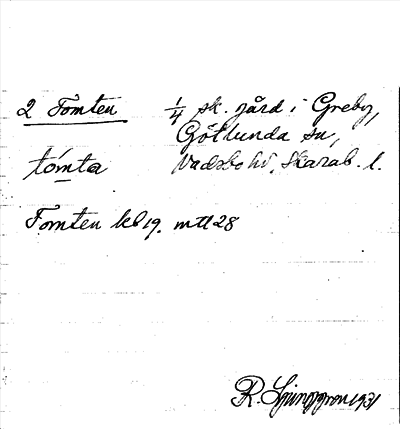 2 Tomten 1/4 sk. jård i Greby,
Götlunda sn,
tómta Vadsbo hd, Skarab. l.
Tomten kb 19. mtl 28
R. Ljunggren 1931